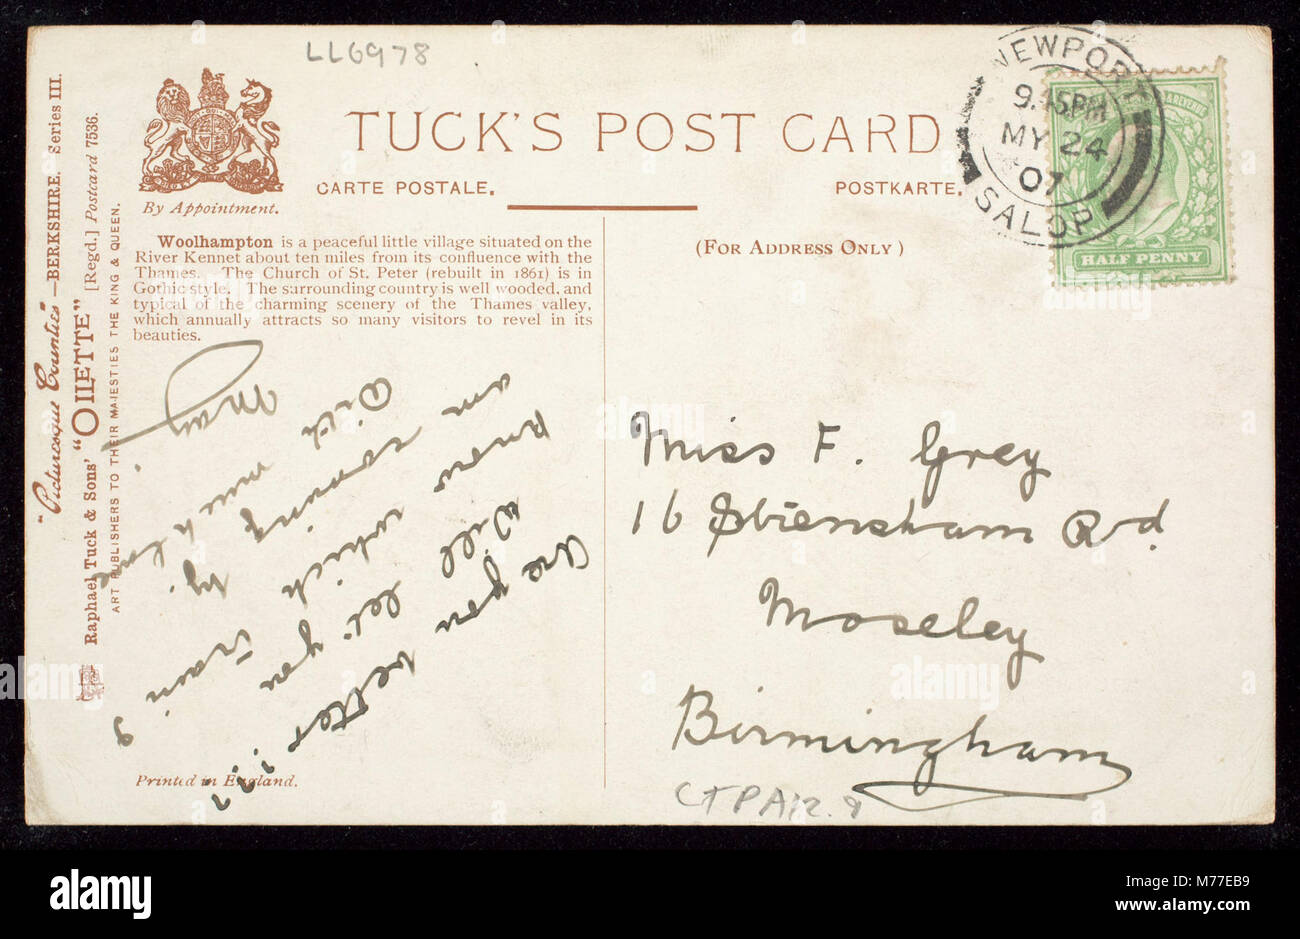 LL6978
TUCK'S POST CARD
CARTE POSTALE.
POSTKARTE.
By Appointment.
(FOR ADDRESS ONLY)
Woolhampton is a peaceful little village situated on the
River Kennet about ten miles from its confluence with the
Thames. The Church of St. Peter (rebuilt in 1861) is in
Gothic style. The surrounding country is well wooded, and
typical of the charming scenery of the Thames valley,
which annually attracts so many visitors to revel in its
beauties.
"Picturesque Counties" —BERKSHIRE. Series III.
Raphael Tuck & Sons' "OILETTE" [Regd.] Postcard 7536.
ART PUBLISHERS TO THEIR MAJESTIES THE KING & QUEEN.
Are you better
Will let you
know which train I
am coming by.
With much love
May
Printed in England.
NEWPORT
9.45PM
MY 24
07
SALOP
HALF PENNY
Miss F. Grey
16 Strensham Rd.
Moseley
Birmingham
CTPA12.9
alamy
Image ID: M77EB9
www.alamy.com